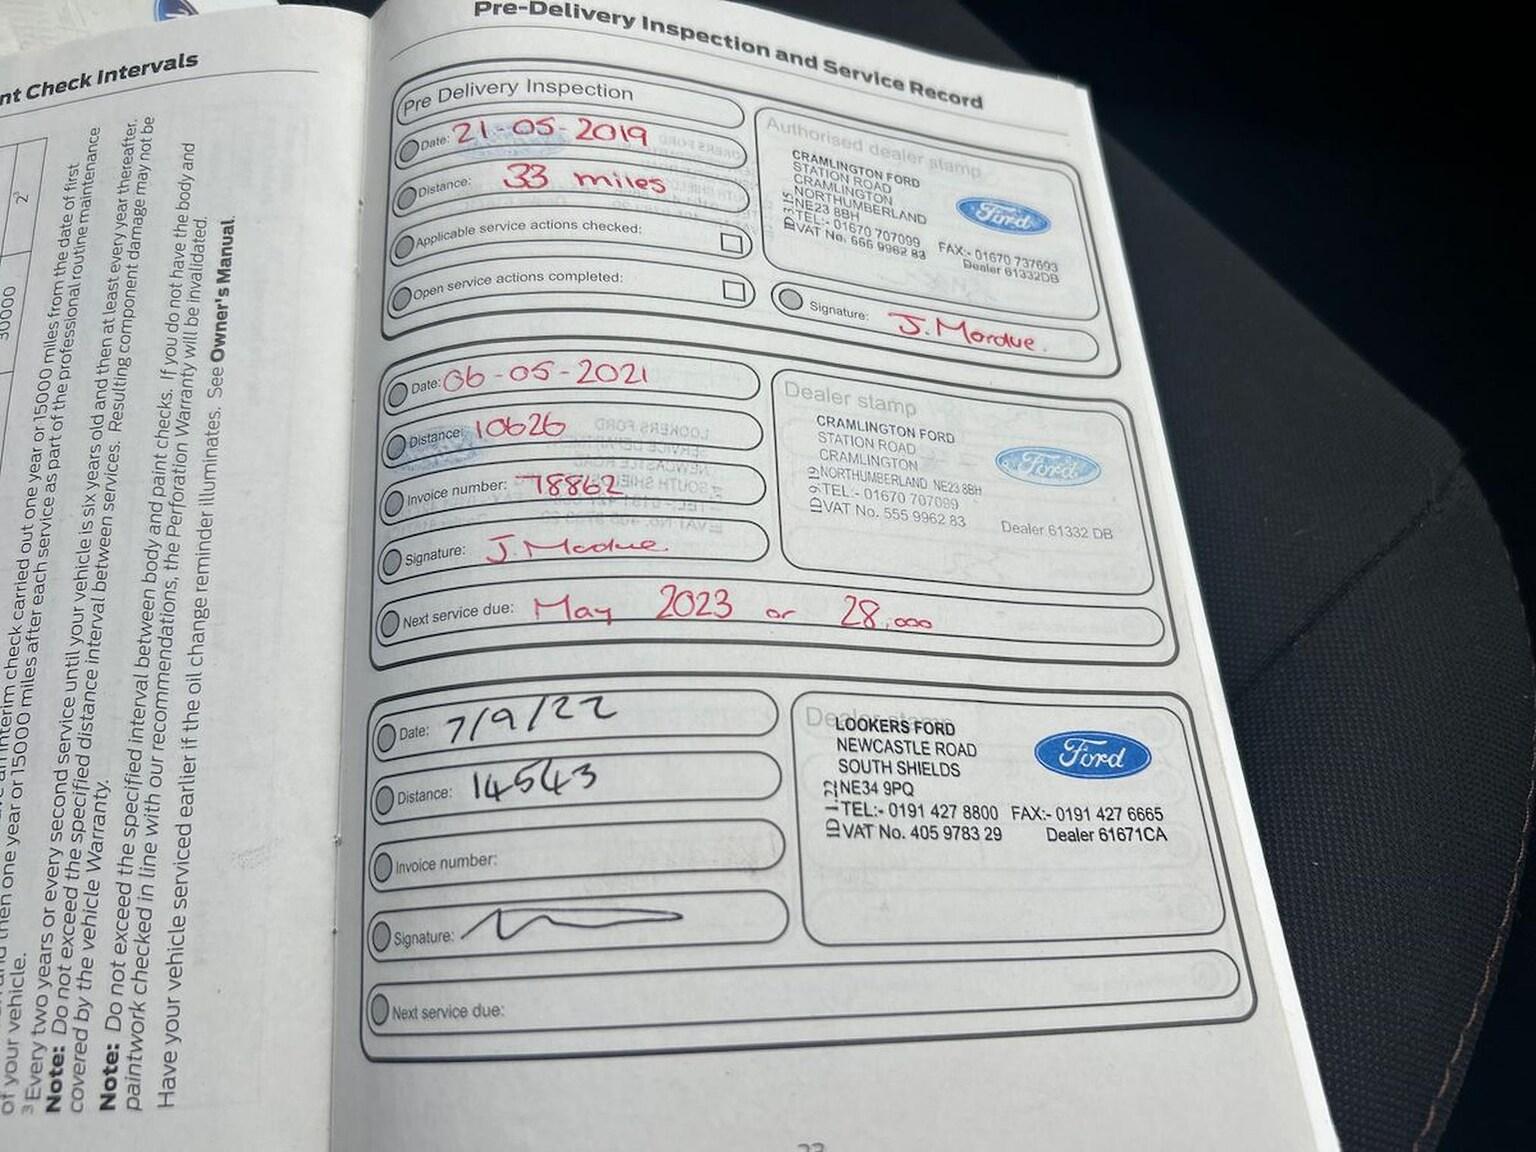 nt Check Intervals
2³
30000
interim check carried out one year or 15000 miles from the date of first
then one year or 15000 miles after each service as part of the professional routine maintenance
of your vehicle.
³ Every two years or every second service until your vehicle is six years old and then at least every year thereafter.
Note: Do not exceed the specified distance interval between services. Resulting component damage may not be
covered by the vehicle Warranty.
Note: Do not exceed the specified interval between body and paint checks. If you do not have the body and
paintwork checked in line with our recommendations, the Perforation Warranty will be invalidated.
Have your vehicle serviced earlier if the oil change reminder illuminates. See Owner's Manual.
Pre-Delivery Inspection and Service Record
Pre Delivery Inspection
Date: 21-05-2019
Distance: 33 miles
Applicable service actions checked:
Open service actions completed:
Authorised dealer stamp
CRAMLINGTON FORD
STATION ROAD
CRAMLINGTON
NORTHUMBERLAND
NE23 8BH
TEL:- 01670 707099 FAX:- 01670 737693
VAT No. 666 9962 83 Dealer 61332DB
Ford
Signature: J. Mordue.
Date: 06-05-2021
Distance: 10626
Invoice number: 78862
Signature: J. Mordue
Next service due: May 2023 or 28,000
Dealer stamp
CRAMLINGTON FORD
STATION ROAD
CRAMLINGTON
NORTHUMBERLAND NE23 8BH
TEL:- 01670 707099
VAT No. 555 9962 83 Dealer 61332 DB
Ford
Date: 7/9/22
Distance: 14543
Invoice number:
Signature:
Next service due:
LOOKERS FORD
NEWCASTLE ROAD
SOUTH SHIELDS
NE34 9PQ
TEL:- 0191 427 8800 FAX:- 0191 427 6665
VAT No. 405 9783 29 Dealer 61671CA
Ford